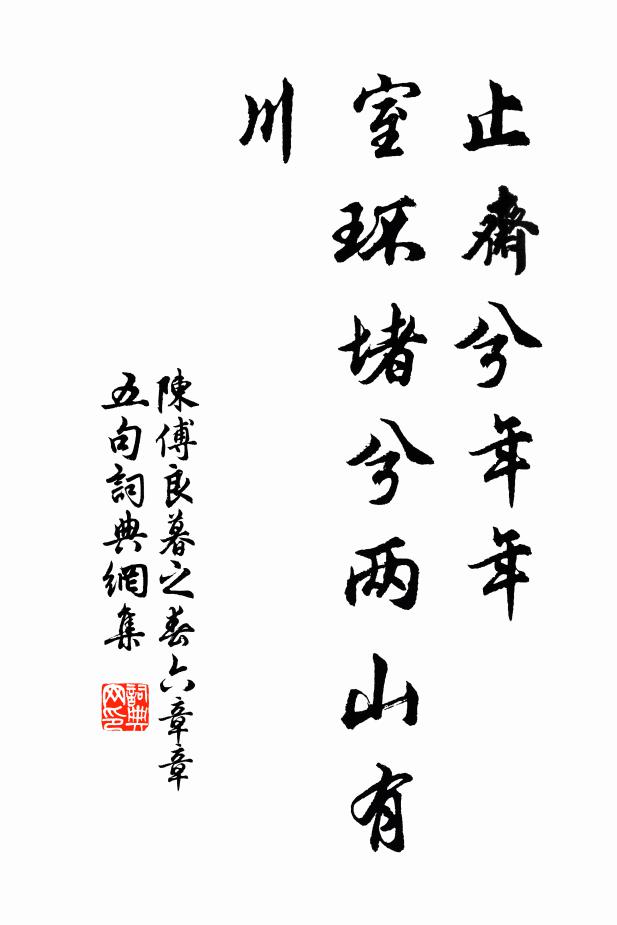 止齋兮年年
室环堵兮两山有
川
陳傅良暮之春六章章
五句詞典網集
詞典网印